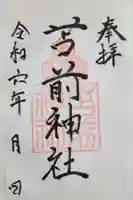 奉拝
苫前神社
令和六年 月 日